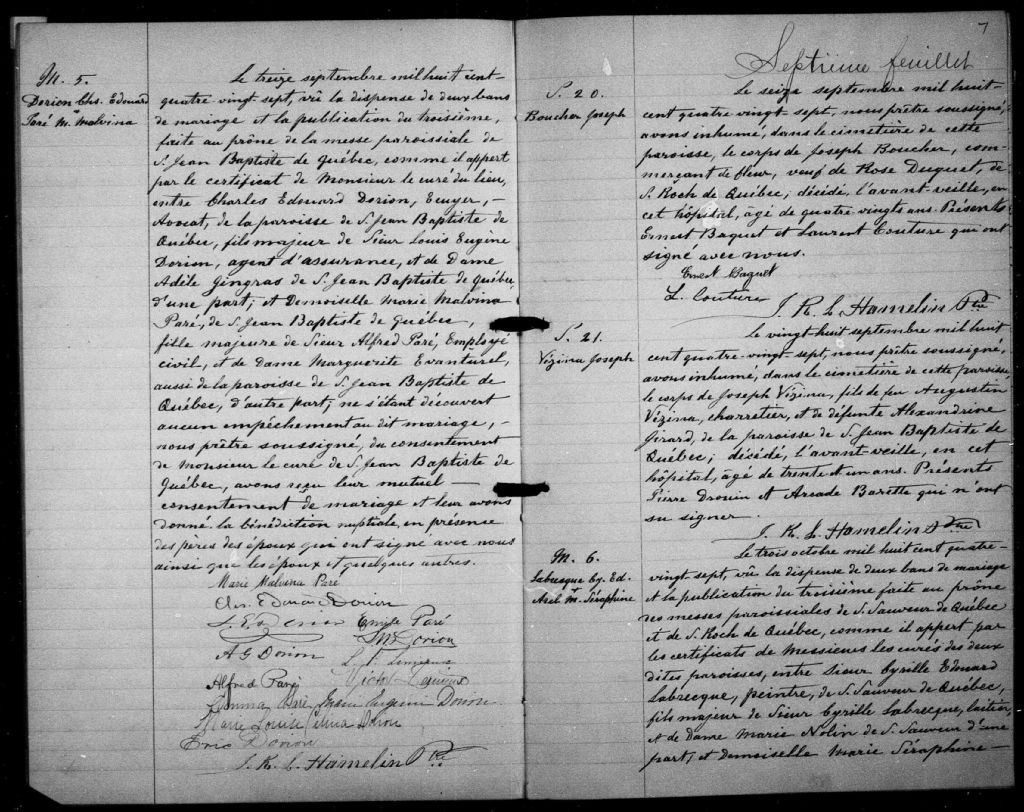 M. 5.
Dorion Chs. Edouard
Paré M. Malvina
Le treize septembre mil huit cent
quatre vingt sept, vû la dispense de deux bans
de mariage et la publication du troisième,
faite au prône de la messe paroissiale de
S. Jean Baptiste de Québec, comme il appert
par le certificat de Monsieur le curé du lieu,
entre Charles Edouard Dorion, Ecuyer, –
Avocat, de la paroisse de S. Jean Baptiste de
Québec, fils majeur de Sieur Louis Eugène
Dorion, agent d'assurance, et de Dame
Adèle Gingras de S. Jean Baptiste de Québec,
d'une part; et Demoiselle Marie Malvina
Paré, de S. Jean Baptiste de Québec,
fille majeure de Sieur Alfred Paré, Employé
civil, et de Dame Marguerite Evanturel,
aussi de la paroisse de S. Jean Baptiste de
Québec, d'autre part; ne s'étant découvert
aucun empêchement au dit mariage, –
nous prêtre soussigné, du consentement
de Monsieur le curé de S. Jean Baptiste de
Québec, avons reçu leur mutuel –
consentement de mariage et leur avons
donné la bénédiction nuptiale, en présence
des pères des époux qui ont signé avec nous
ainsi que les époux et quelques autres.
Marie Malvina Paré
Chs. Edouard Dorion
L. E. Dorion Emile Paré
A G Dorion M Dorion
Alfred Paré
Emma Paré Eugène Dorion
Marie Louise Dorion
Eric Dorion
J. R. L. Hamelin Ptre
7
Septième feuillet
S. 20.
Boucher Joseph
Le seize septembre mil huit-
cent quatre vingt-sept, nous prêtre soussigné,
avons inhumé, dans le cimetière de cette
paroisse, le corps de Joseph Boucher, com-
merçant de fleur, veuf de Rose Duguet, de
S. Roch de Québec; décédé, l'avant-veille, en
cet hôpital, âgé de quatre vingts ans. Présents
Ernest Baquet et Laurent Couture qui ont
signé avec nous.
Ernest Baquet
L. Couture
J. R. L. Hamelin Ptre
S. 21.
Vézina Joseph
Le vingt huit septembre mil huit
cent quatre-vingt-sept, nous prêtre soussigné,
avons inhumé, dans le cimetière de cette paroisse,
le corps de Joseph Vézina, fils de feu Augustin
Vézina, charretier, et de défunte Alexandrine
Girard, de la paroisse de S. Jean Baptiste de
Québec; décédé, l'avant-veille, en cet
hôpital, âgé de trente et un ans. Présents
Pierre Drouin et Arcade Barette qui n'ont
su signer.
J. R. L. Hamelin Ptre
M. 6.
Labrecque Cy. Ed.
M. Séraphine
Le trois octobre mil huit cent quatre-
vingt-sept, vû la dispense de deux bans de mariage
et la publication du troisième faite au prône
des messes paroissiales de S. Sauveur de Québec
et de S. Roch de Québec, comme il appert par
les certificats de Messieurs les curés des deux
dites paroisses, entre Sieur Cyrille Edouard
Labrecque, peintre, de S. Sauveur de Québec,
fils majeur de Sieur Cyrille Labrecque, laitier,
et de Dame Marie Nolin de S. Sauveur d'une
part; et Demoiselle Marie Séraphine –